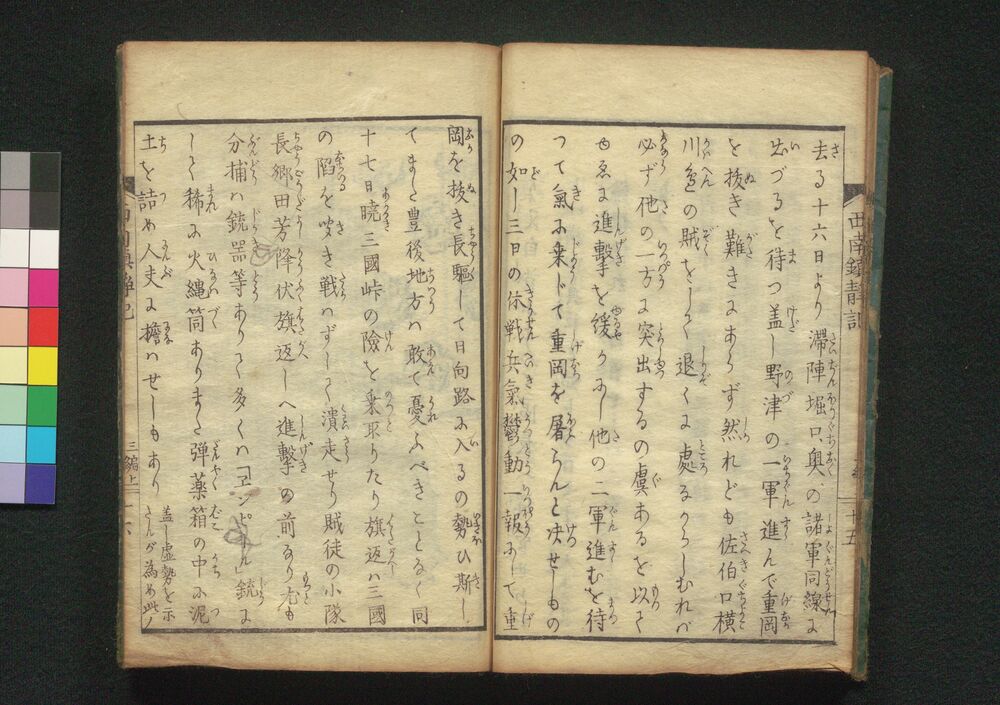 去る十六日より滞陣堀口、奥、の諸軍同線に
出づるを待つ盖し野津の一軍進んで重岡
を抜き難きにあらず然れども佐伯口横
川邉の賊をして退くに處るからしむれバ
必ず他の一方に突出するの虞あるを以て
ゆゑに進撃を緩かにし他の二軍進むを待
つて氣に乗じて重岡を屠らんと决せしもの
の如し三日の休戦兵氣鬱動一報にして重
岡を抜き長駆して日向路に入るの勢ひ斯し
てまた豊後地方ハ敢て憂ふべきことなく同
十七日暁三國峠の險を乗取りたり旗返ハ三國
の陥を聞き戦ハずして潰走せり賊徒の小隊
長郷田芳降伏旗返しへ進撃の前なり尤も
分捕ハ銃器等ありて多くハヱンピール銃に
して稀に火縄筒ありまた弾薬箱の中に泥
土を詰め人夫に擔ハせしもあり
盖し虚勢を示
さんが為め此ノ
西南鎮静記
十五
三編上
十六